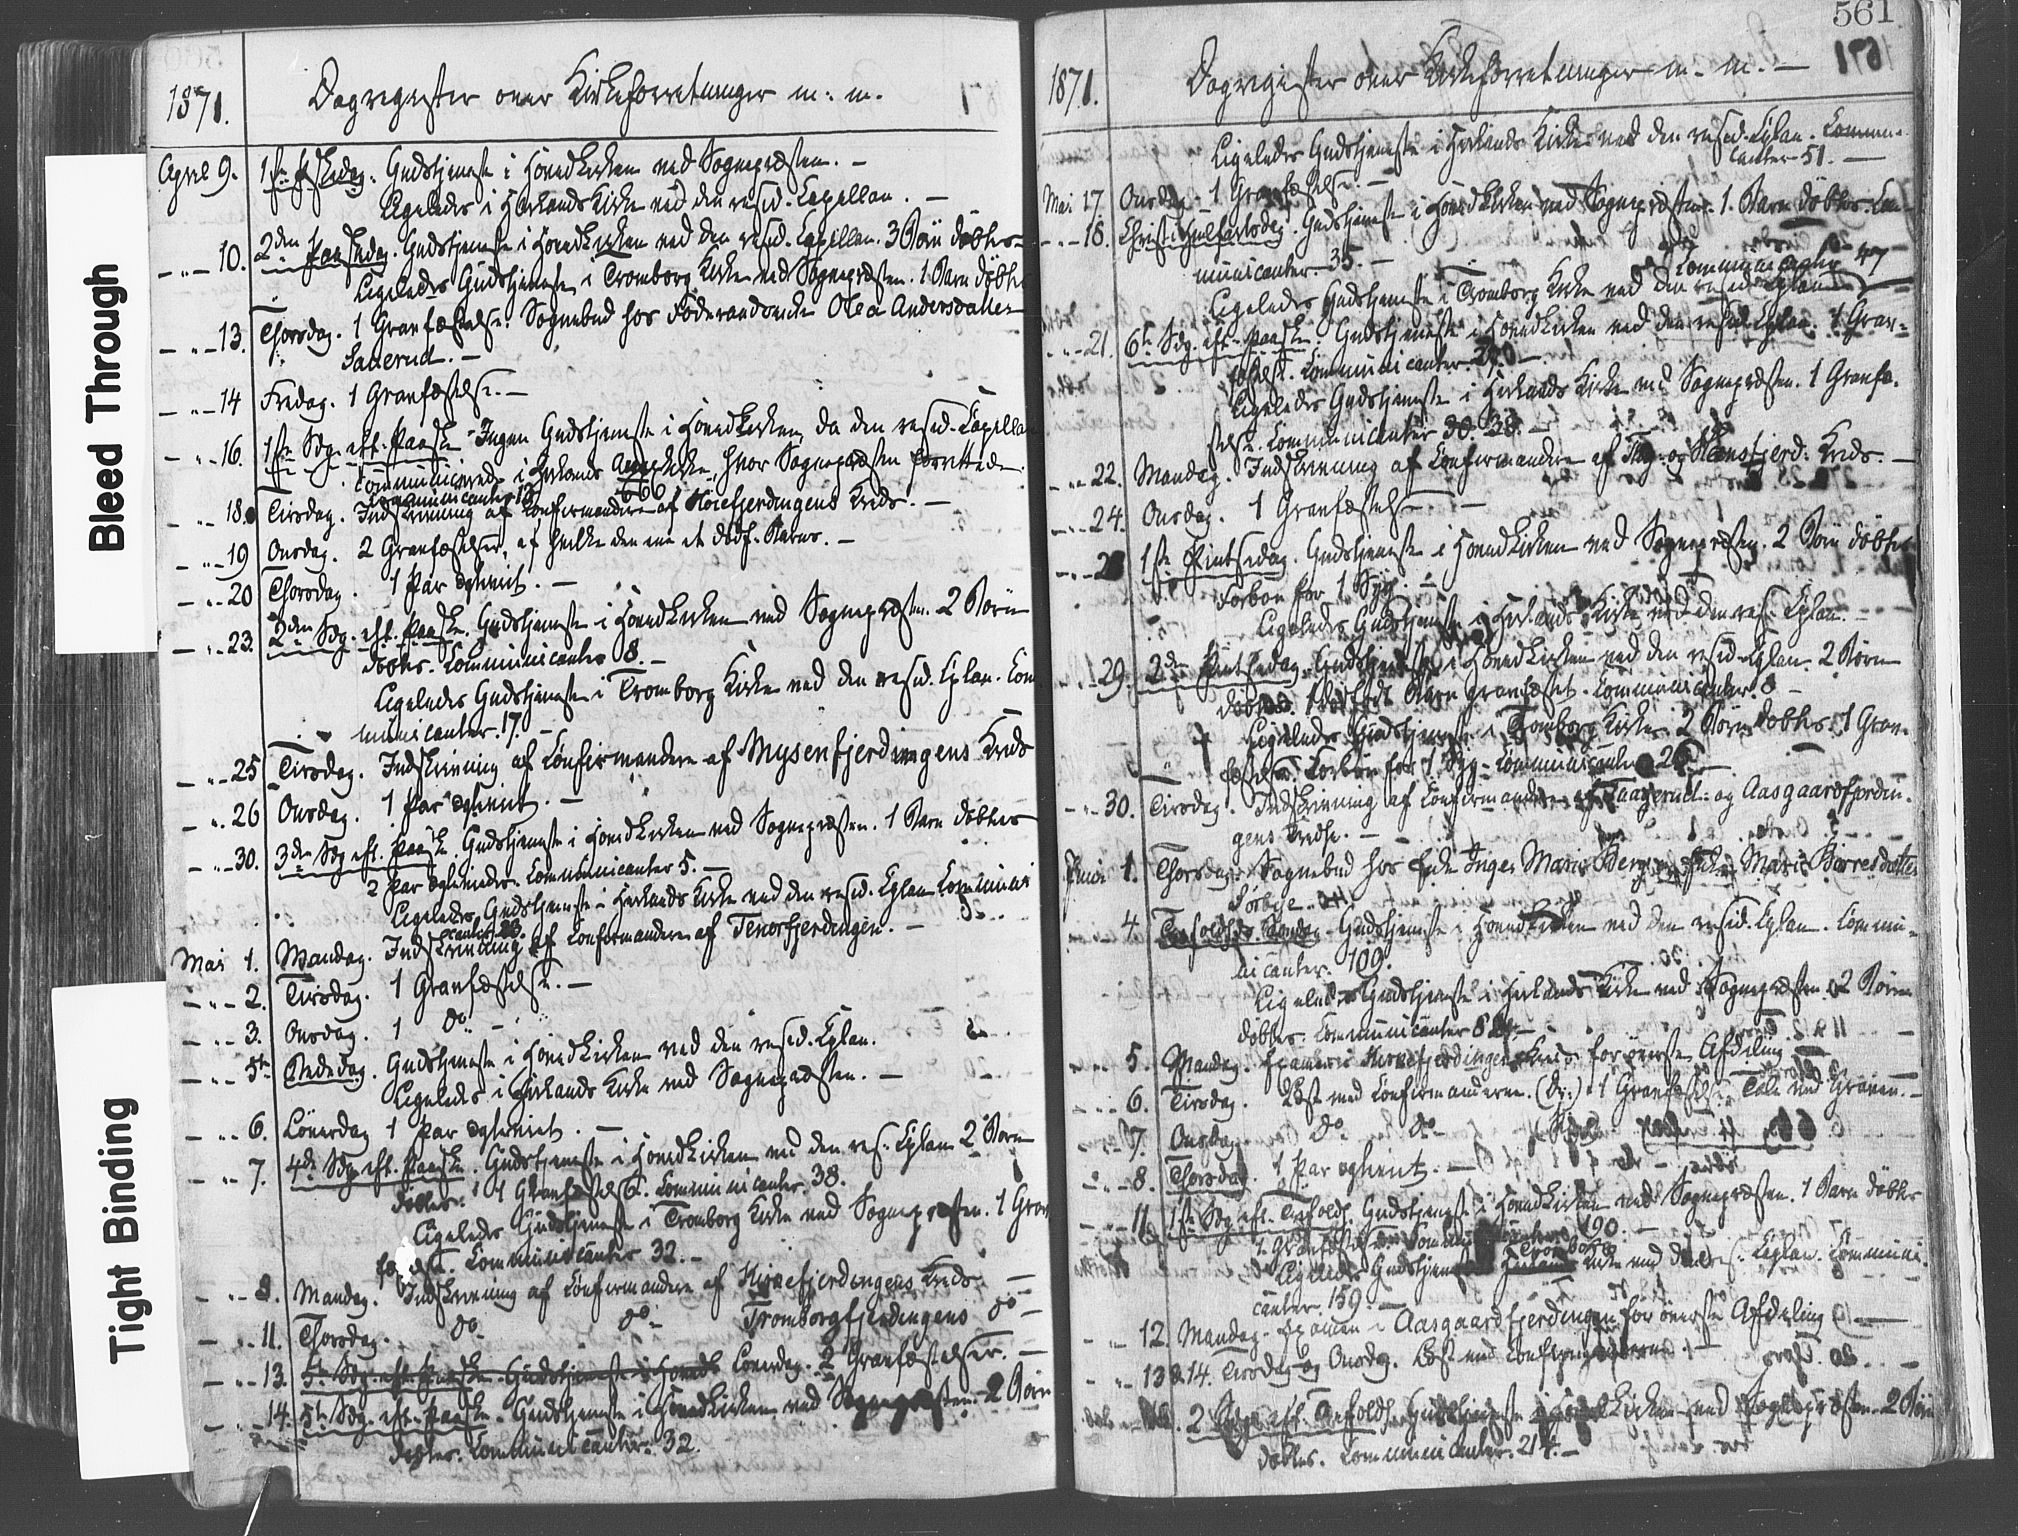 Bleed Through
Tight Binding
1871. Dagregister over Kirkeforretninger m. m.
April 9. 1ste Paaskedag. Gudstjeneste i Hovedkirken ved Sognepræsten. —
Ligeledes i Herlands Kirke ved den resid. Capellan. —
— " — 10. 2den Paaskedag. Gudstjeneste i Hovedkirken ved den resid. Capellan. 3 Børn døbtes
Ligeledes Gudstjeneste i Tromborg Kirke ved Sognepræsten. 1 Barn døbtes
— " — 13. Thorsdag. 1 Gravfæstelse. Sognebud hos Føderaadsenke Olea Andersdatter
— " — 14 Fredag. 1 Gravfæstelse. —
— " — 16. 1ste Sdg. eft. Paaske. Ingen Gudstjeneste i Hovedkirken, da den resid. Capellan
communicerede i Herlands Kirke, hvor Sognepræsten forrettede.
Communicanter
— " — 18. Tirsdag. Indskrivning af Confirmandere af Høiefjerdingens Kreds. —
— " — 19 Onsdag. 2 Gravfæstelser, af hvilke den ene et dødf. Barns. —
— " — 20 Thorsdag. 1 Par ægteviet. —
— " — 23. 2den Sdg. eft. Paaske. Gudstjeneste i Hovedkirken ved Sognepræsten. 2 Børn
døbtes. Communicanter 8. —
Ligeledes Gudstjeneste i Tromborg Kirke ved den resid. Cplan. Com
municanter. 17. —
— " — 25 Tirsdag. Indskrivning af Confirmandere af Mysenfjerdingens Kreds
— " — 26 Onsdag. 1 Par ægteviet. —
— " — 30. 3die Sdg. eft. Paaske. Gudstjeneste i Hovedkirken ved Sognepræsten. 1 Barn døbtes
2 Par ægteviedes. Communicanter 5. —
Ligeledes Gudstjeneste i Herlands Kirke ved den resid. Cplan. Communi
canter
Mai 1. Mandag. Indskrivning af Confirmandere af Tenorfjerdingen. —
— " — 2. Tirsdag. 1 Gravfæstelse. —
— " — 3. Onsdag. 1 do —
— " — 5te Bededag. Gudstjeneste i Hovedkirken ved den resid. Cplan.
Ligeledes i Herlands Kirke ved Sognepræsten. —
— " — 6. Løverdag 1 Par ægteviet. —
— " — 7. 4de Sdg. eft. Paaske. Gudstjeneste i Hovedkirken ved den res. Cplan 2 Børn
døbtes. 1 Gravfæstelse. Communicanter. 38.
Ligeledes Gudstjeneste i Tromborg Kirke ved Sognepræsten. 1 Grav
Communicanter 32. —
— " — 8. Mandag. Indskrivning af Confirmandere af Kreds —
— " — 11. Thorsdag. do do Tromborgfjerdingens do —
— " — 13. 5te Sdg. eft. Paaske. Gudstjeneste i Hoved Løverdag. 2 Gravfæstelser. —
— " — 14. 5te Sdg. eft. Paaske. Gudstjeneste i Hovedkirken ved Sognepræsten. 2 Børn
døbtes. Communicanter. 32.
561
1871. Dagregister over Kirkeforretninger m. m. —
Ligeledes Gudstjeneste i Herlands Kirke ved den resid. Cplan. Commu-
canter 51. —
Mai 17 Onsdag. 1 Gravfæstelse. —
— " — 18. Christi Himmelfartsdag. Gudstjeneste i Hovedkirken ved Sognepræsten. 1. Barn døbtes. Com
municanter 35. —
Communicanter 47
Ligeledes Gudstjeneste i Tromborg Kirke ved den resid. Cplan
— " — 21. 6te Sdg. eft. Paaske. Gudstjeneste i Hovedkirken ved den resid. Cplan. 1 Grav-
fæstelse. Communicanter
Ligeledes Gudstjeneste i Herlands Kirke ved Sognepræsten. 1 Gravfæ-
stelse. Communicanter 30. 38. —
— " — 22. Mandag. Indskrivning af Confirmandere af og Kreds —
— " — 24. Onsdag. 1 Gravfæstelse —
1ste Pintsedag. Gudstjeneste i Hovedkirken ved Sognepræsten. 2 Børn døbtes
Forbøn for 1 Syg. —
Ligeledes Gudstjeneste i Herlands Kirke ved den res. Cplan. —
— " — 29. 2den Pintsedag. Gudstjeneste i Hovedkirken ved den resid. Cplan. 2 Børn
døbtes. 1 Barn gravfæstet. Communicanter. 8 —
Ligeledes Gudstjeneste i Tromborg Kirke. 2 Børn døbtes. 1 Grav-
fæstelse. Forbøn for 1 Syg. Communicanter
— " — 30. Tirsdag. Indskrivning af Confirmandere af og Aasgaardfjerdin-
gens Kredse. —
Juni 1. Thorsdag. Sognebud hos Inger Marie Berg og Marie Børresdatter
4 Trefoldhds. Søndag. Gudstjeneste i Hovedkirken ved den resid. Cplan. Commu-
nicanter. 109.
Ligeledes Gudstjeneste i Herlands Kirke ved Sognepræsten. 2 Børn
døbtes. Communicanter
— " — 5. Mandag. Examen i Kreds for øverste Afdeling
— " — 6. Tirsdag. Læst med Confirmanderne. 1 Gravfæstelse. Tale ved Graven. —
7. Onsdag. do do
— " — 8. Thorsdag. 1 Par ægteviet. —
— " — 11 1ste Sdg. eft. Trefoldh. Gudstjeneste i Hovedkirken ved Sognepræsten. 1 Barn døbtes
1 Gravfæstelse. Communicanter 190. —
Tromborg
Ligeledes Gudstjeneste i Herlands Kirke ved den res. Cplan. Communi-
canter. 159. —
— " — 12. Mandag. Examen i Aasgaardfjerdingen for øverste Afdeling —
— " — 13 & 14. Tirsdag og Onsdag. Læst med Confirmanderne. —
2 Sdg. eft. Trefoldh. Gudstjeneste i Hovedkirken ved Sognepræsten. 2 Børn
døbtes. Communicanter. 214. —